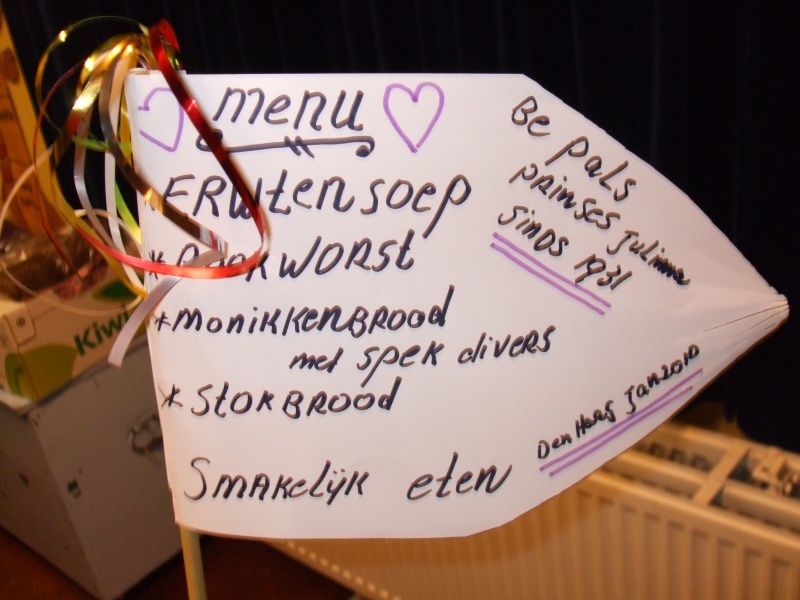 menu
ERWtensoep
* ROOKWORST
* MONIKKENBROOD
met spek divers
* STOKBROOD
SMAKelijk eten
Be pals
PRINSES Juliana
SINDS 1931
Den Haag Jan 2010
Kiwi